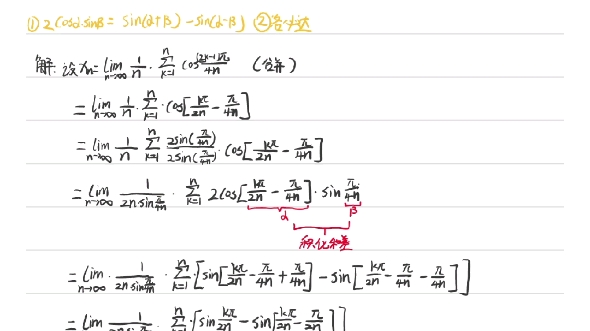 ① 2cosα·sinβ = sin(α+β) - sin(α-β) ②洛必达
解: 设 Xn = lim n→∞ 1/n · Σ k=1 n cos (2k-1)π/4n (合并)
= lim n→∞ 1/n · Σ k=1 n · cos[kπ/2n - π/4n]
= lim n→∞ 1/n · Σ k=1 n 2sin(π/4n)/2sin(π/4n) · cos[kπ/2n - π/4n]
= lim n→∞ 1/2n·sin π/4n · Σ k=1 n 2cos[kπ/2n - π/4n] · sin π/4n
α β
积化和差
= lim n→∞ · 1/2n sin π/4n · Σ k=1 n · [sin[kπ/2n - π/4n + π/4n] - sin[kπ/2n - π/4n - π/4n]]
= lim 1/2n sin π/4n Σ n · [sin kπ/2n - sin[kπ/2n - π/2n]]